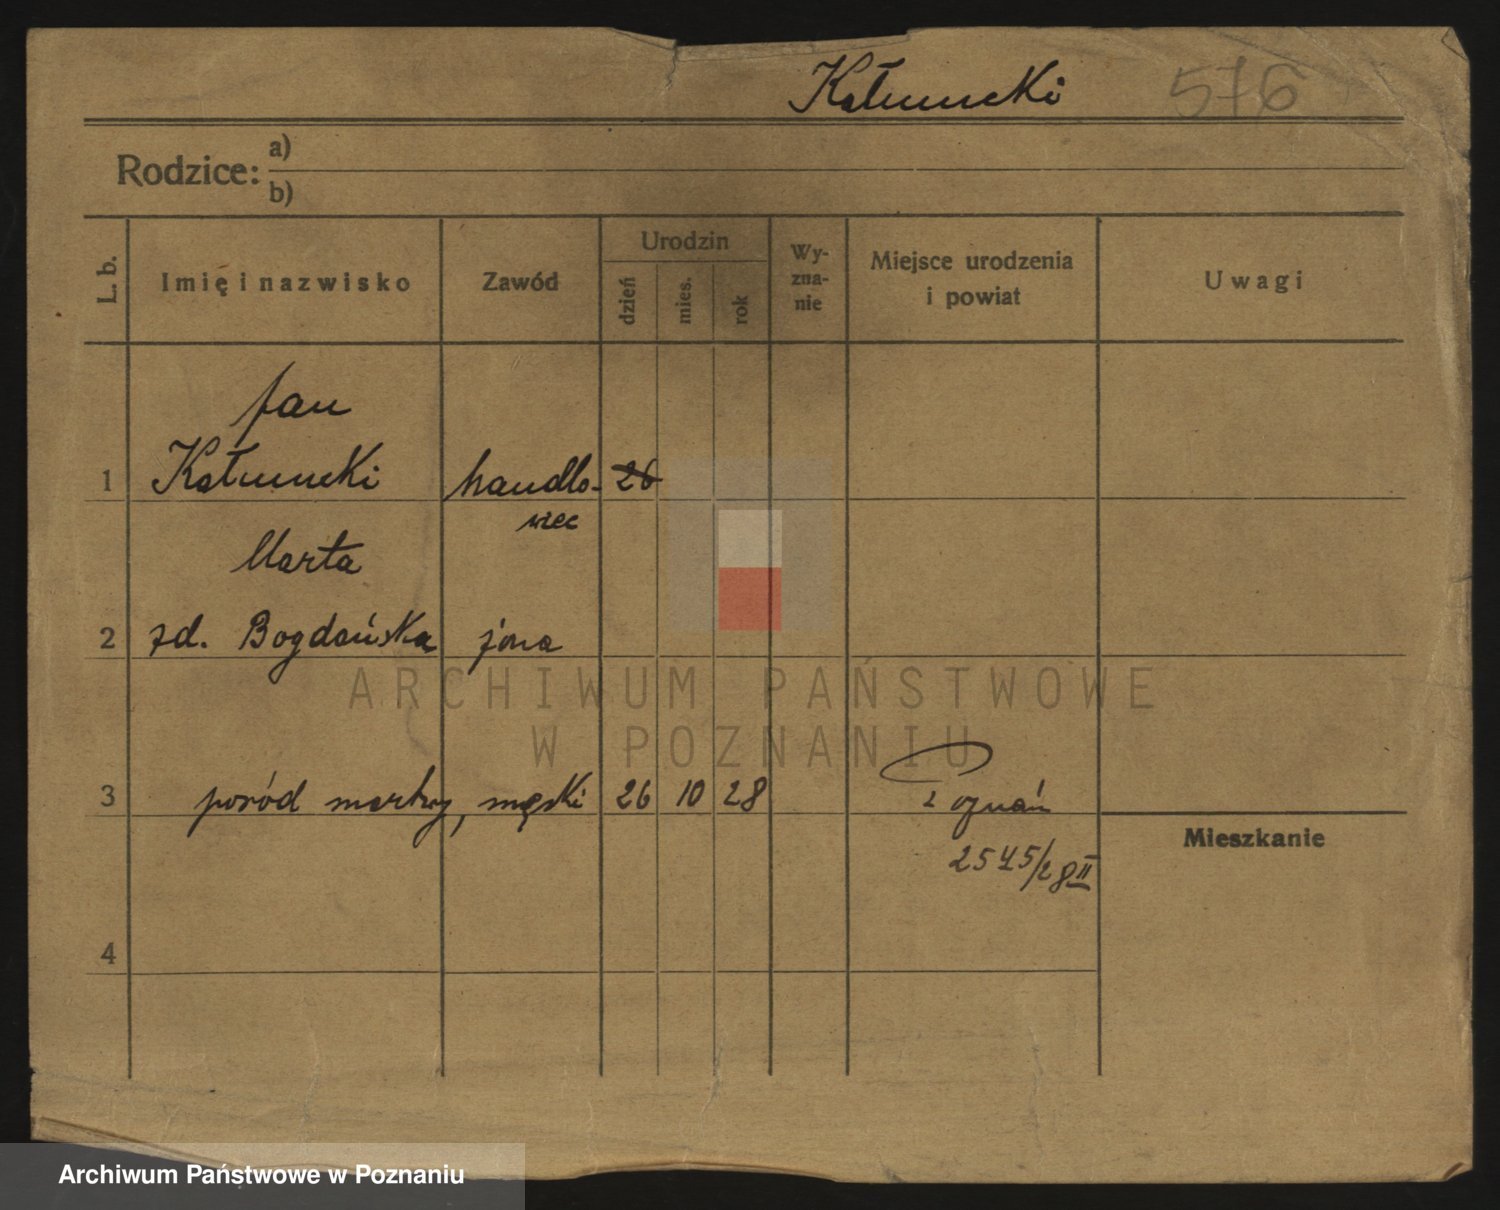 Kałumcki 576
Rodzice: a)
b)
L. b. Imię i nazwisko Zawód Urodzin dzień mies. rok Wy-zna-nie Miejsce urodzenia i powiat Uwagi
Jan
1 Kałumcki handlo- 26
wiec
Marta
2 zd. Bogdańska żona
ARCHIWUM PAŃSTWOWE
W POZNANIU
3 poród martwy, męski 26 10 28 Poznań
Mieszkanie
2545/28 II
4
Archiwum Państwowe w Poznaniu